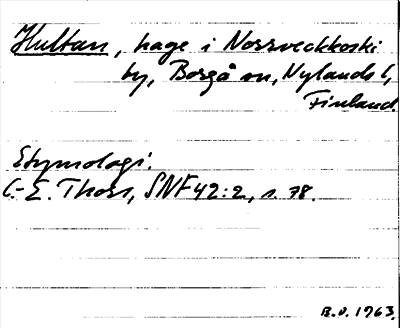 Hultan, hage i Norrveckkoski
by, Borgå sn, Nylands l,
Finland.
Etymologi.
C.-E. Thors, SNF 42:2, s. 78.
B.O. 1963.